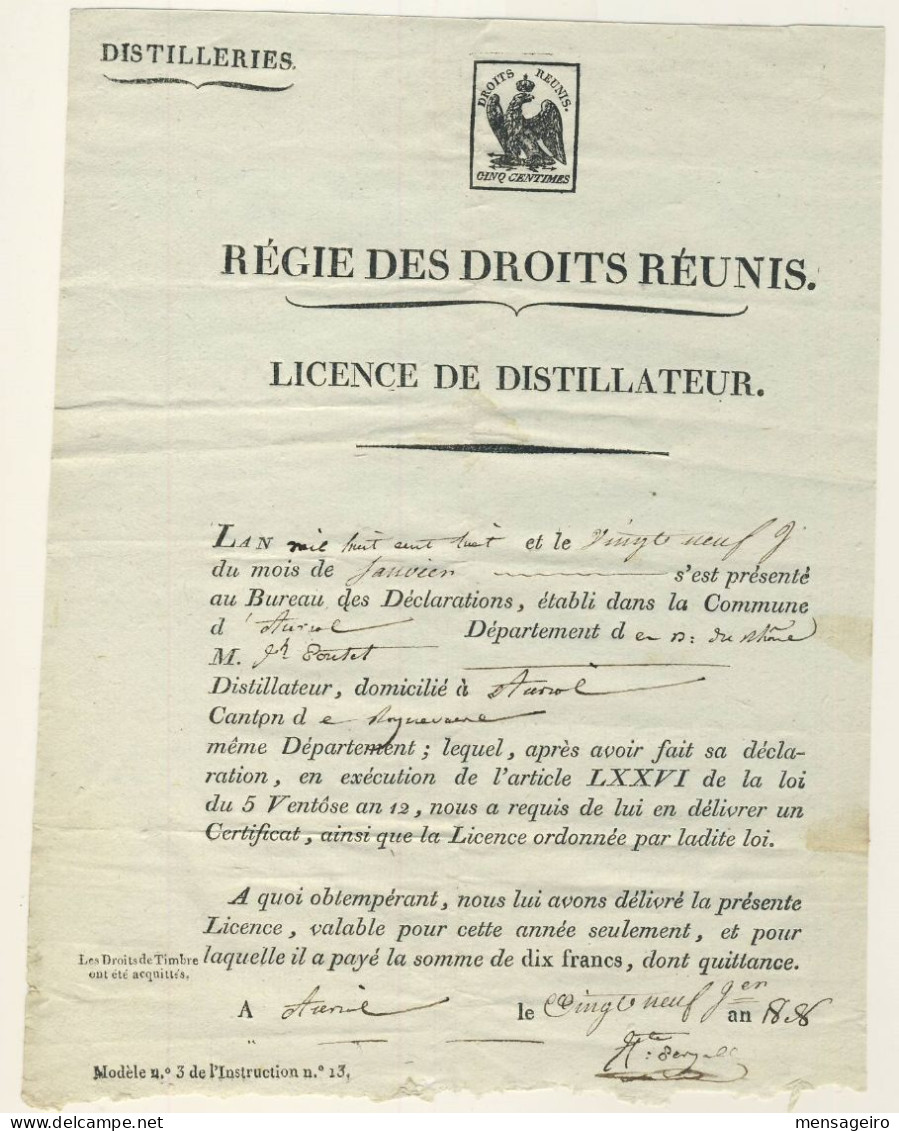 DISTILLERIES.
DROITS RÉUNIS.
CINQ CENTIMES
RÉGIE DES DROITS RÉUNIS.
LICENCE DE DISTILLATEUR.
LAN mil huit cent huit et le vingt neuf
du mois de Janvier s'est présenté
au Bureau des Déclarations, établi dans la Commune
d' Auriol Département d es B. du Rhône
M.
Distillateur, domicilié à Auriol
Canton d e Roquevaire
même Département ; lequel, après avoir fait sa décla-
ration, en exécution de l'article LXXVI de la loi
du 5 Ventôse an 12, nous a requis de lui en délivrer un
Certificat, ainsi que la Licence ordonnée par ladite loi.
A quoi obtempérant, nous lui avons délivré la présente
Licence, valable pour cette année seulement, et pour
laquelle il a payé la somme de dix francs, dont quittance.
Les Droits de Timbre
ont été acquittés.
A Auriol le vingt neuf Jer an
Modèle n.º 3 de l'Instruction n.º 13.
mensageiro